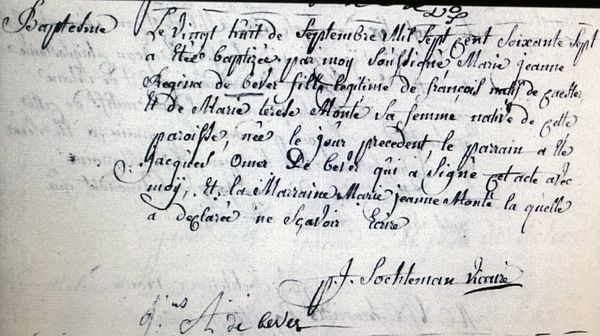 Baptesme
Le vingt huit de Septembre Mil Sept Cent Soixante Sept
a êtée baptizée par moy Soussigné Marie jeanne
Regina de bever fille legitime de françois natif de
et de Marie terese Monté Sa femme native de Cette
paroisse, nee le jour precedent, le parrain a ete
jacques Omer De bever qui a Signé Cet acte avec
moy, et la Marraine Marie jeanne Monté la quelle
a declarée ne Sçavoir Ecrire
J. Sochteman vicaire
de bever